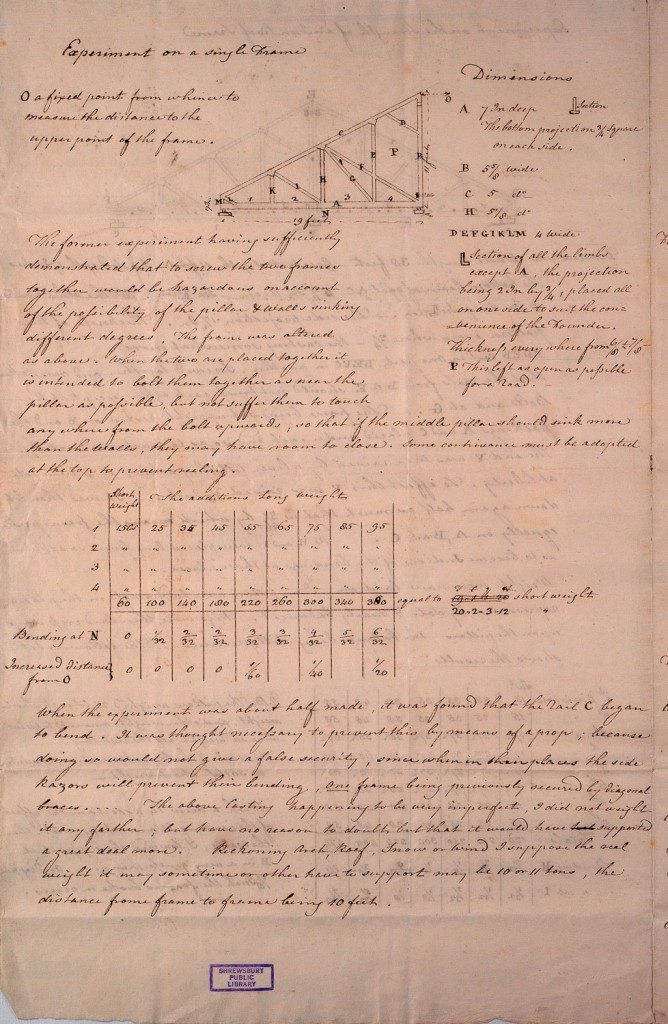 Experiment on a single Frame
O a fixed point from whence to
measure the distance to the
upper point of the frame.
O
C
B
P
R
E
F
A
G
H
I
K
M L
1 2 3 4
A
N
19 feet
11 feet
Dimensions
A 7 In deep Section
The bottom projection 3/4 square
on each side.
B 5 5/8 wide
C 5 do
H 5 1/8 do
DEFGIKLM 4 wide
Section of all the limbs
except A, the projection
being 2 In by 3/4, placed all
on one side to suit the con-
venience of the Founder.
Thickness every where from 6/8 to 7/8
P This left as open as possible
for a Road.
The former experiment having sufficiently
demonstrated that to screw the two frames
together would be hazardous on account
of the possibility of the pillar & walls sinking
different degrees. The frame was altered
as above. When the two are placed together it
is intended to bolt them together as near the
pillar as possible, but not suffer them to touch
any where from the bolt upwards, so that if the middle pillar should sink more
than the walls, they may have room to close. Some contrivance must be adopted
at the top to prevent reeling.
Short weight The additions Long weight
1 15Cs 25 35 45 55 65 75 85 95
2 " " " " " " " " "
3 " " " " " " " " "
4 " " " " " " " " "
60 100 140 180 220 260 300 340 380 equal to short weight
T C Q lb
20-2-3-12 "
Bending at N 0 1/32 2/32 2/32 3/32 3/32 4/32 5/32 6/32
Increased distance from O 0 0 0 0 1/60 1/40 1/20
When the experiment was about half made, it was found that the rail C began
to bend. It was thought necessary to prevent this by means of a prop; because
doing so would not give a false security, since when in their places the side
Razors will prevent their bending, one frame being previously secured by diagonal
braces..... The above Casting happening to be very imperfect, I did not weight
it any farther; but have no reason to doubt but that it would have supported
a great deal more. Reckoning Arch, Roof, Snow or Wind I suppose the real
weight it may sometime or other have to support may be 10 or 11 tons, the
distance frome frame to frame being 10 feet.
SHREWSBURY
PUBLIC
LIBRARY